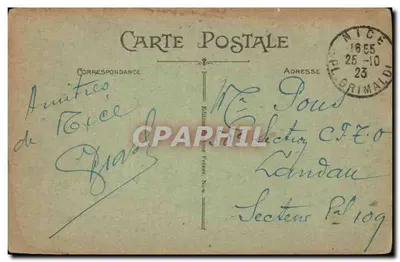 CARTE POSTALE
CORRESPONDANCE
ADRESSE
NICE
18 55
25 -10
23
PL. GRIMALDI
Amitiés
de Nice
Mr Pons
Section C.F.Z.O
Landau
Secteur Pal 109
CPAPHIL.com